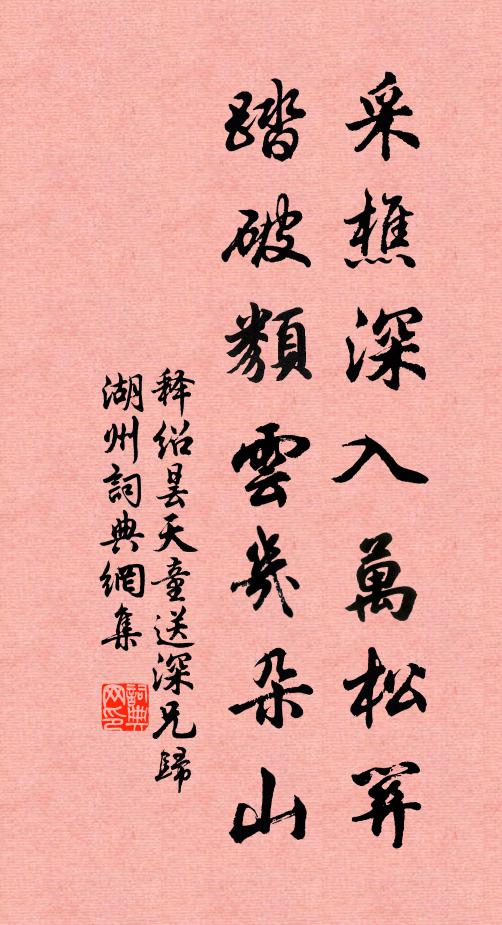 采樵深入萬松關
踏破雲幾朵山
释绍昙天童送深兄歸
湖州詞典網集
詞典网印